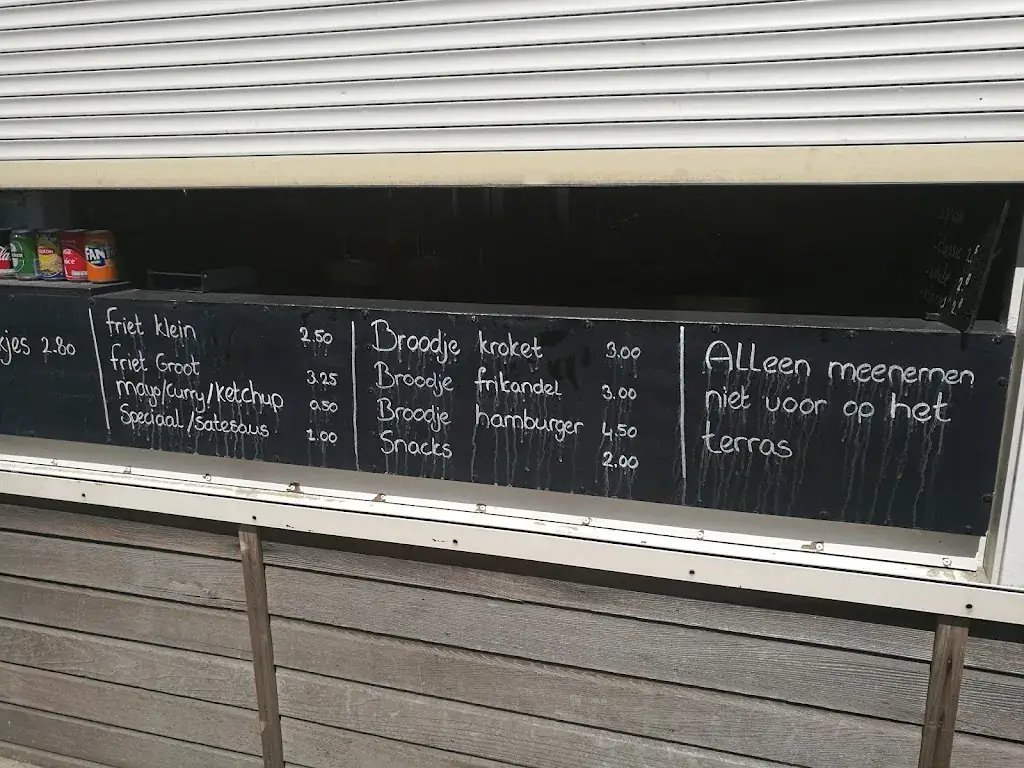 FANTA
kjes 2.80
friet klein 2.50
friet Groot 3.25
mayo/curry/ketchup 0.50
Speciaal/Satesaus 1.00
Broodje kroket 3.00
Broodje frikandel 3.00
Broodje hamburger 4.50
Snacks 2.00
Alleen meenemen
niet voor op het
terras